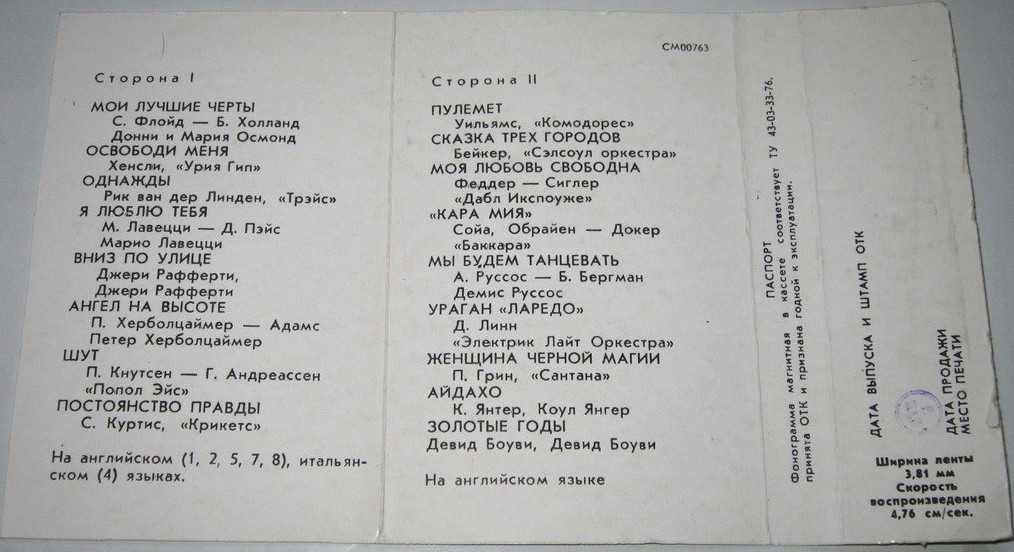 Сторона I
МОИ ЛУЧШИЕ ЧЕРТЫ
С. Флойд — Б. Холланд
Донни и Мария Осмонд
ОСВОБОДИ МЕНЯ
Хенсли, «Урия Гип»
ОДНАЖДЫ
Рик ван дер Линден, «Трэйс»
Я ЛЮБЛЮ ТЕБЯ
М. Лавецци — Д. Пэйс
Марио Лавецци
ВНИЗ ПО УЛИЦЕ
Джери Рафферти,
Джери Рафферти
АНГЕЛ НА ВЫСОТЕ
П. Херболцаймер — Адамс
Петер Херболцаймер
ШУТ
П. Кнутсен — Г. Андреассен
«Попол Эйс»
ПОСТОЯНСТВО ПРАВДЫ
С. Куртис, «Крикетс»
На английском (1, 2, 5, 7, 8), итальян-
ском (4) языках.
СМ00763
Сторона II
ПУЛЕМЕТ
Уильямс, «Комодорес»
СКАЗКА ТРЕХ ГОРОДОВ
Бейкер, «Сэлсоул оркестра»
МОЯ ЛЮБОВЬ СВОБОДНА
Феддер — Сиглер
«Дабл Икспоуже»
«КАРА МИЯ»
Сойа, Обрайен — Докер
«Баккара»
МЫ БУДЕМ ТАНЦЕВАТЬ
А. Руссос — Б. Бергман
Демис Руссос
УРАГАН «ЛАРЕДО»
Д. Линн
«Электрик Лайт Оркестра»
ЖЕНЩИНА ЧЕРНОЙ МАГИИ
П. Грин, «Сантана»
АЙДАХО
К. Янтер, Коул Янгер
ЗОЛОТЫЕ ГОДЫ
Девид Боуви, Девид Боуви
На английском языке
ПАСПОРТ
Фонограмма магнитная в кассете соответствует ТУ 43-03-33-76,
принята ОТК и признана годной к эксплуатации.
ДАТА ВЫПУСКА И ШТАМП ОТК
ДАТА ПРОДАЖИ
МЕСТО ПЕЧАТИ
Ширина ленты
3,81 мм
Скорость
воспроизведения
4,76 см/сек.